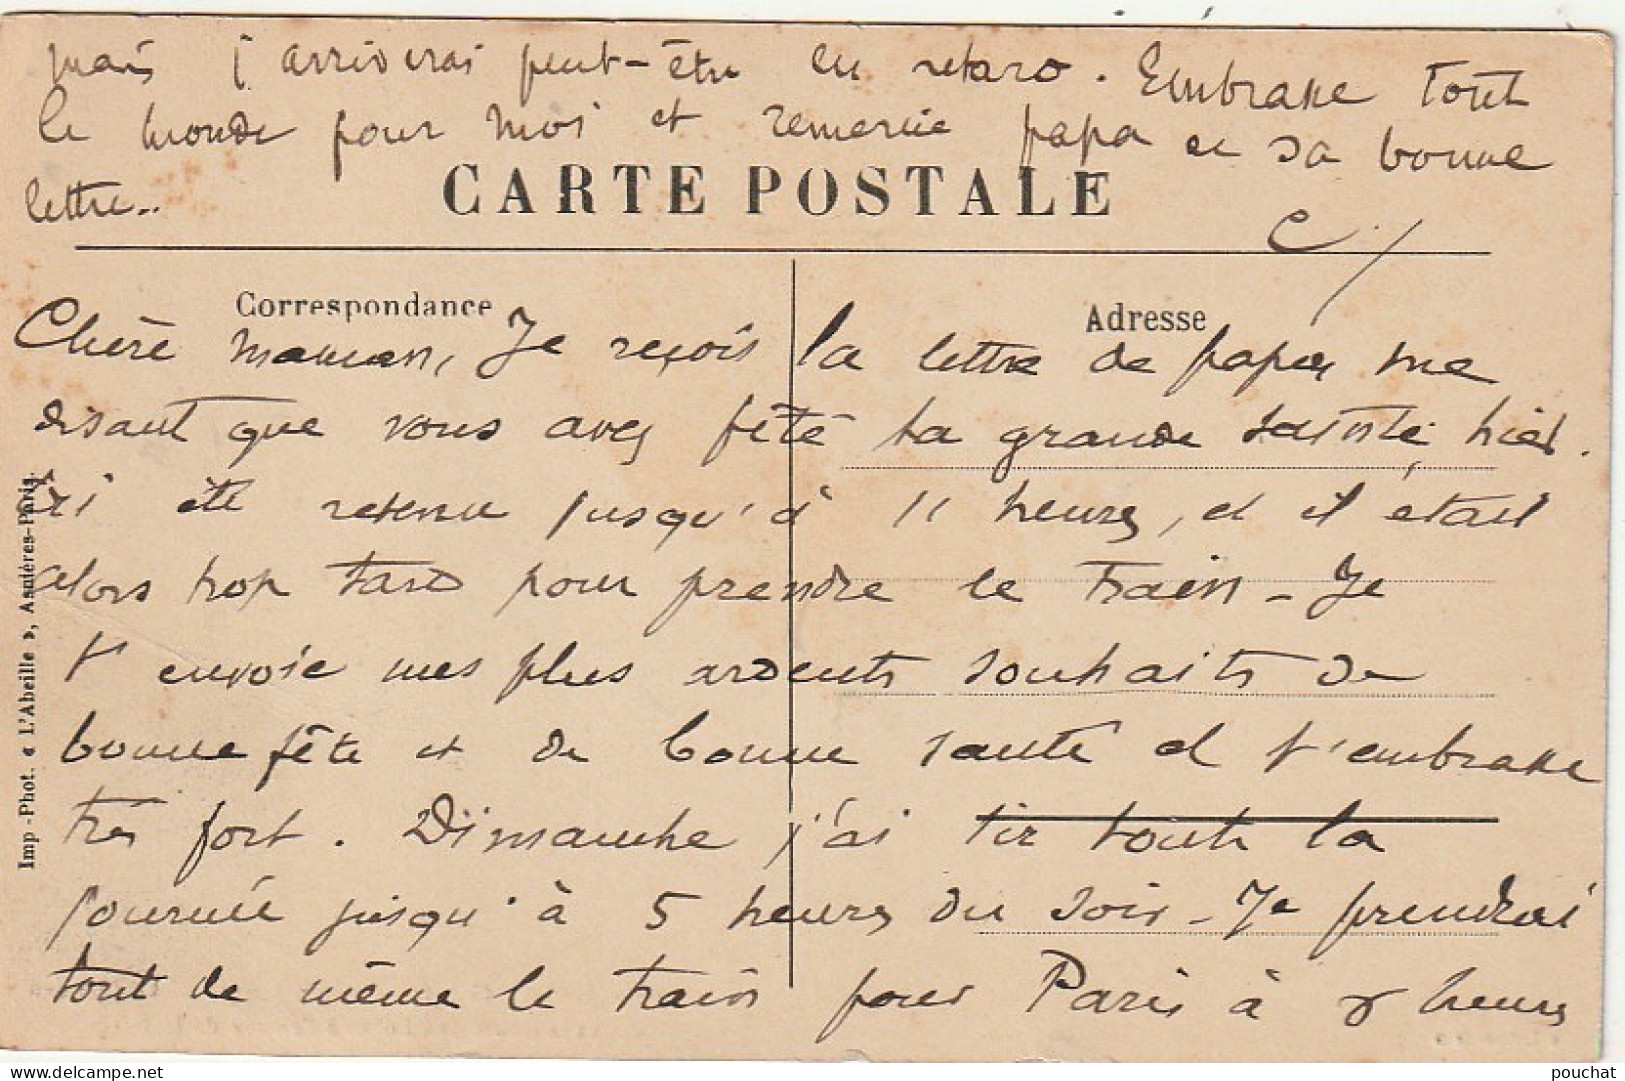 mais j'arriverai peut-être en retard. Embrasse tout
le monde pour moi et remercie papa de sa bonne
lettre..
CARTE POSTALE
C
Correspondance
Adresse
Chère maman, Je reçois la lettre de papa me
disant que vous avez fêté ta grande sainte hier.
J'ai été retenu jusqu'à 11 heures, et il était
alors trop tard pour prendre le train - Je
t'envoie mes plus ardents souhaits de
bonne fête et de bonne santé et t'embrasse
très fort. Dimanche j'ai tir toute la
journée jusqu'à 5 heures du soir - Je prendrai
tout de même le train pour Paris à 8 heures
Imp-Phot. « L'Abeille », Asnières-Paris.
delcampe.net
pouchat